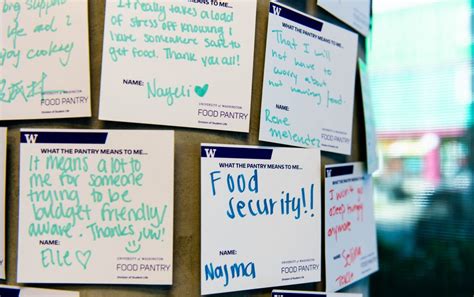 bring support
enjoy cooking
FOOD PANTRY
Division of Student Life
It really takes a load
of stress off knowing I
have somewhere safe to
get food. Thank you all!
NAME:
Nayeli
UNIVERSITY of WASHINGTON
FOOD PANTRY
Division of Student Life
W
WHAT THE PANTRY MEANS TO ME...
That I will
not have to
worry about
not having food.
NAME:
Rose
melendez
W
WHAT THE PANTRY MEANS TO ME...
It means a lot to
me for someone
trying to be
budget friendly/
aware.. Thanks
NAME:
Elle
UNIVERSITY of WASHINGTON
FOOD PANTRY
Division of Student Life
W
WHAT THE PANTRY MEANS TO ME...
Food
security!!
NAME:
Najma
UNIVERSITY of WASHINGTON
FOOD PANTRY
Division of Student Life
W
I won't go
asleep hungry
anymore
NAME:
Selina
W
WHAT THE PANTRY MEANS TO ME...
W